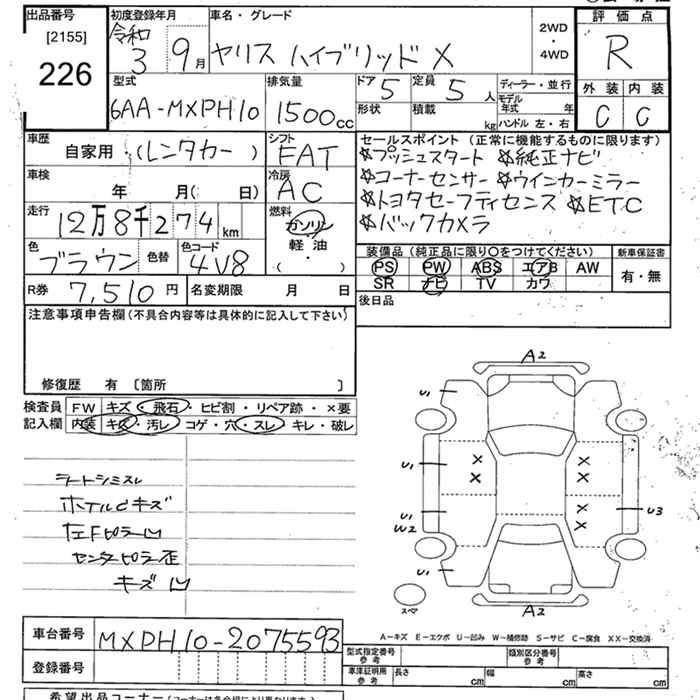 出品番号
[2155]
226
初度登録年月
令和
3 9月
車名・グレード
ヤリス ハイブリッド X
2WD
・
4WD
評価点
R
外装 内装
C C
型式
6AA-MXPH10
排気量
1500cc
ドア 5
定員 5人
形状
積載 kg
ディーラー・並行
モデル年式 年
ハンドル 左・右
車歴
自家用・(レンタカー)
シフト
FAT
車検
年 月( 日)
冷房
AC
走行
12万8千274km
燃料
ガソリン
軽油
・
( )
色
ブラウン
色替
色コード
4V8
R券 7,510円
名変期限 月 日
セールスポイント(正常に機能するものに限ります)
☆プッシュスタート ☆純正ナビ
☆コーナーセンサー ☆ウインカーミラー
☆トヨタセーフティセンス ☆ETC
☆バックカメラ
装備品(純正品に限り〇をつけてください)
新車保証書
PS PW ABS エアB AW
SR ナビ TV カワ
有・無
後日品
注意事項申告欄(不具合内容等は具体的に記入して下さい)
修復歴 有 〔箇所 〕
検査員
記入欄
FW キズ・飛石・ヒビ割・リペア跡・×要
内装 キズ・汚レ・コゲ・穴・スレ・キレ・破レ
ホイルCキズ
左Fピラー凹
センターピラー歪
キズ凹
A2
U1
U1
U1
W2
U1
U3
A2
スペア
A－キズ E－エクボ U－凹み W－補修跡 S－サビ C－腐食 XX－交換済
車台番号
MXPH10-2075593
登録番号
型式指定番号
参考
類別区分番号
参考
車庫証明用
参考
長さ cm
幅 cm
高さ cm
希望出品コーナー